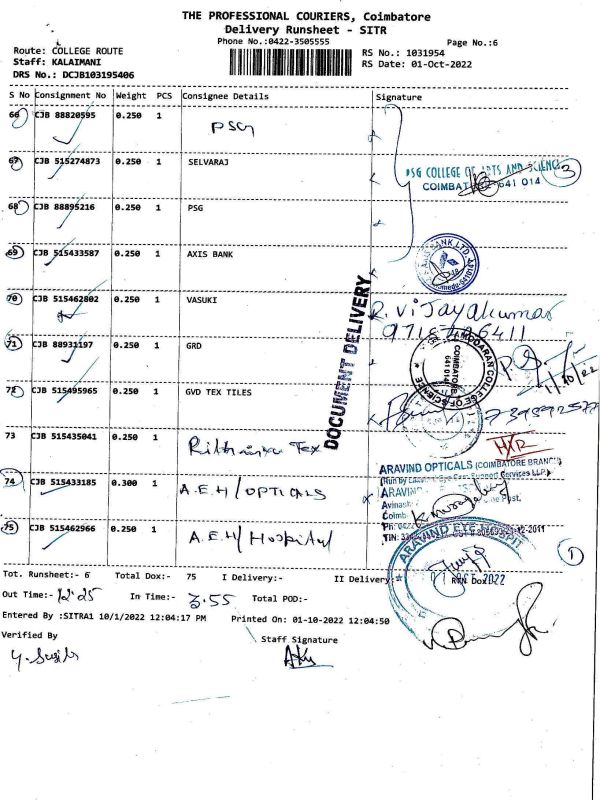 THE PROFESSIONAL COURIERS, Coimbatore
Delivery Runsheet - SITR
Phone No.:0422-3505555
Page No.:6
Route: COLLEGE ROUTE
RS No.: 1031954
Staff: KALAIMANI
RS Date: 01-Oct-2022
DRS No.: DCJB103195406
S No Consignment No Weight PCS Consignee Details Signature
66 CJB 88820595 0.250 1 PSG
67 CJB 515274873 0.250 1 SELVARAJ
PSG COLLEGE OF ARTS AND SCIENCE
COIMBATORE-641 014
3
68 CJB 88895216 0.250 1 PSG
69 CJB 515433587 0.250 1 AXIS BANK
AXIS BANK LTD.
70 CJB 515462802 0.250 1 VASUKI
R. Vijayakumar
DOCUMENT DELIVERY
71 CJB 88931197 0.250 1 GRD
COLLEGE OF SCIENCE
COIMBATORE
641 014
1/10/22
72 CJB 515495965 0.250 1 GVD TEX TILES
73 CJB 515435041 0.250 1
Tex
74 CJB 515433185 0.300 1 A.E.H/OPTICALS
ARAVIND OPTICALS (COIMBATORE BRANCH)
75 CJB 515462966 0.250 1 A.E.H/Hospital
ARAVIND EYE HOSPIT
2022
1
Tot. Runsheet:- 6 Total Dox:- 75 I Delivery:- II Delivery:-
Out Time:- 12.25 In Time:- 3.55 Total POD:-
Entered By :SITRA1 10/1/2022 12:04:17 PM Printed On: 01-10-2022 12:04:50
Verified By
Staff Signature